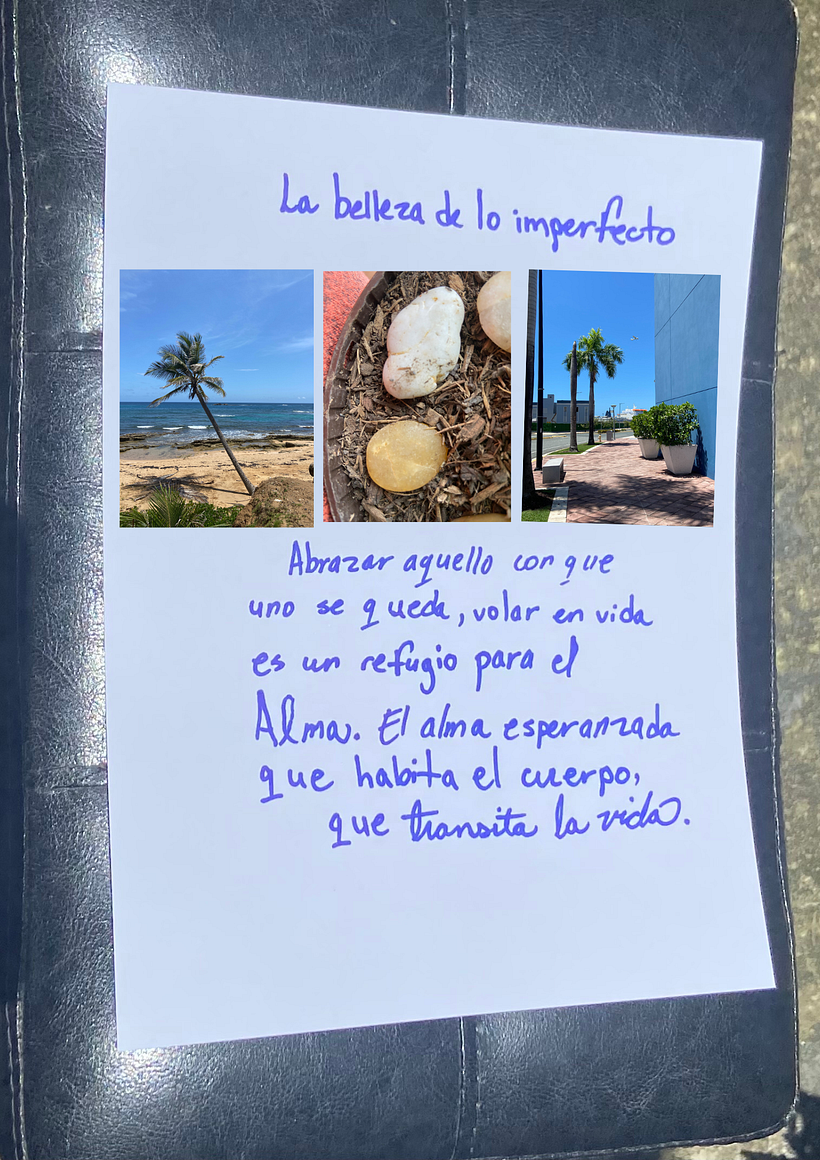 La belleza de lo imperfecto
Abrazar aquello con que
uno se queda, volar en vida
es un refugio para el
Alma. El alma esperanzada
que habita el cuerpo,
que transita la vida.